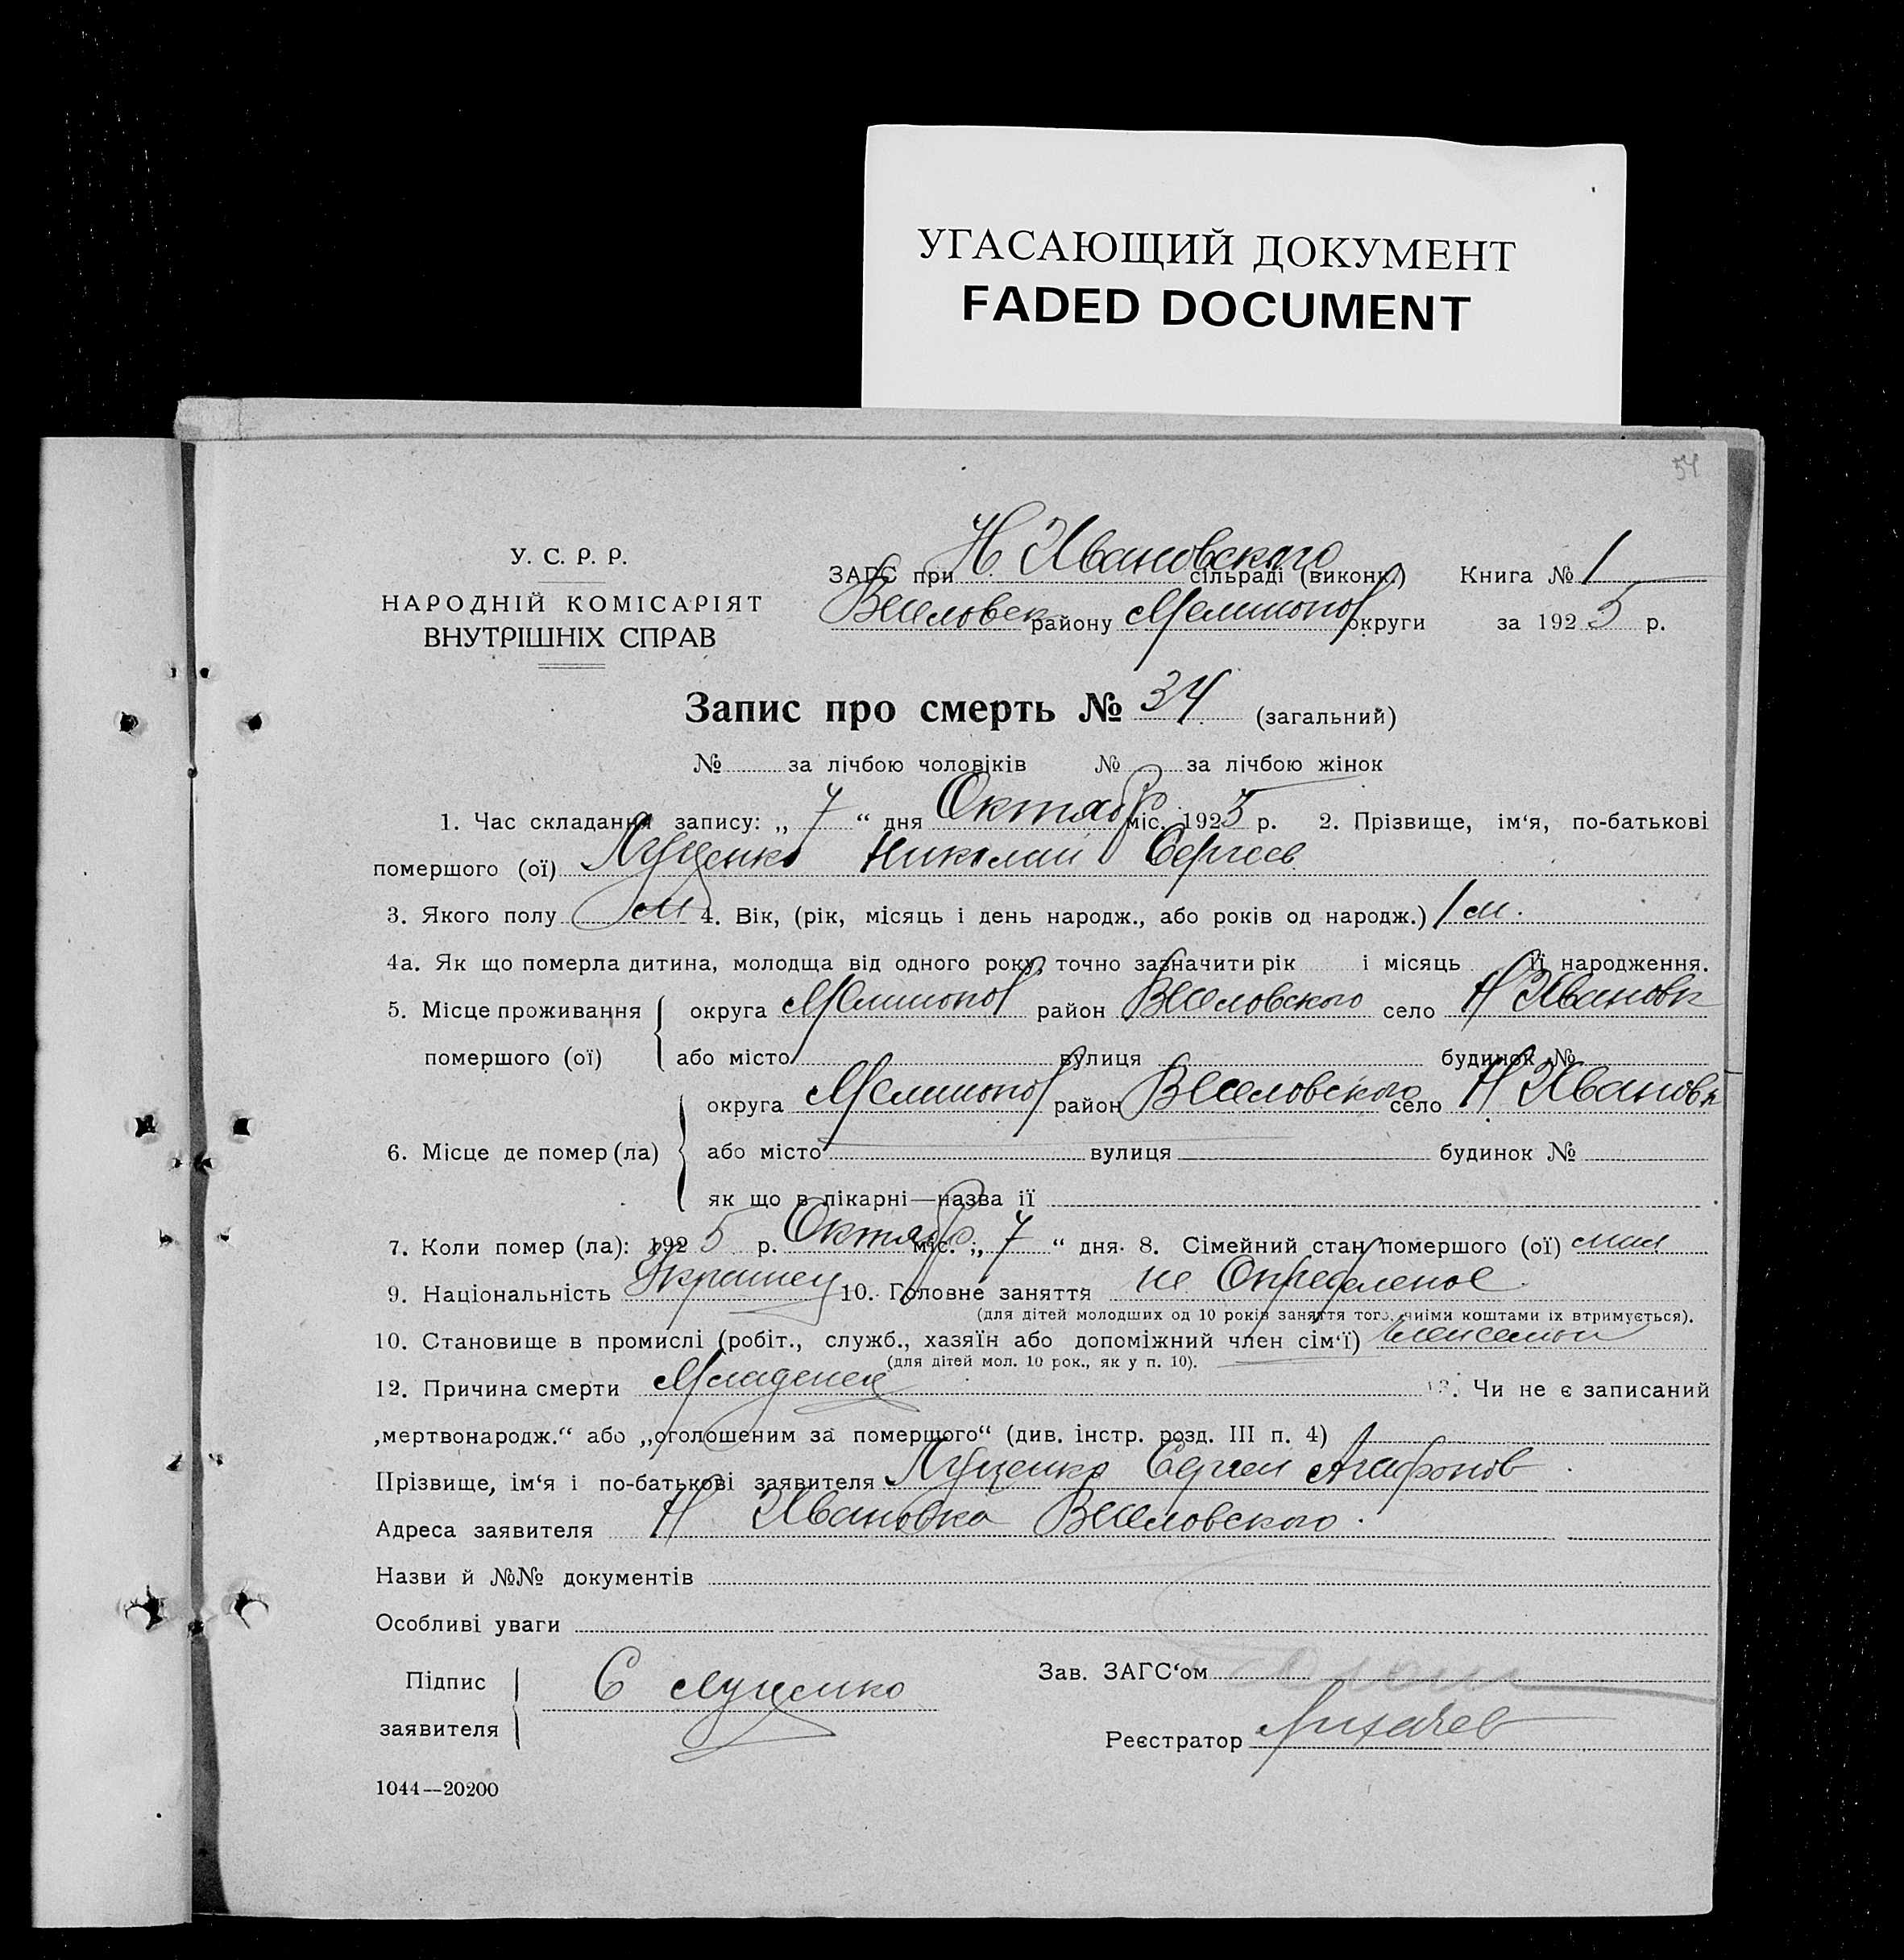 УГАСАЮЩИЙ ДОКУМЕНТ
FADED DOCUMENT
54
У. С. Р. Р.
НАРОДНІЙ КОМІСАРІЯТ
ВНУТРІШНІХ СПРАВ
ЗАГС при Н Ивановского сільраді (виконк.) Книга № 1
Веселовск району Мелитопол округи за 1925 р.
Запис про смерть № 34 (загальний)
№ за лічбою чоловіків № за лічбою жінок
1. Час складання запису: „ 7 “ дня Октябр міс. 1925 р. 2. Прізвище, ім‘я, по-батькові
помершого (ої) Луценко Николай Сергеев
3. Якого полу м 4. Вік, (рік, місяць і день народж., або років од народж.) 1 м.
4а. Як що померла дитина, молодша від одного року, точно зазначити рік і місяць її народження.
5. Місце проживання округа Мелитопол район Веселовского село Н Ивановк
помершого (ої) або місто вулиця будинок №
округа Мелитопол район Веселовского село Н Ивановк
6. Місце де помер (ла) або місто вулиця будинок №
як що в лікарні—назва її
7. Коли помер (ла): 1925 р. Октябр міс. „ 7 “ дня. 8. Сімейний стан помершого (ої)
9. Національність Украинец 10. Головне заняття не Определеное
(для дітей молодших од 10 років заняття того, чиїми коштами їх втримується).
10. Становище в промислі (робіт., служб., хазяїн або допоміжний член сім‘ї)
(для дітей мол. 10 рок., як у п. 10).
12. Причина смерти Младенец 13. Чи не є записаний
„мертвонародж.“ або „оголошеним за помершого“ (див. інстр. розд. III п. 4)
Прізвище, ім‘я і по-батькові заявителя Луценко Сергей Агафонов
Адреса заявителя Н Ивановка Веселовского.
Назви й №№ документів
Особливі уваги
Підпис
заявителя С Луценко
Зав. ЗАГС‘ом
Реєстратор Лихачев
1044—20200